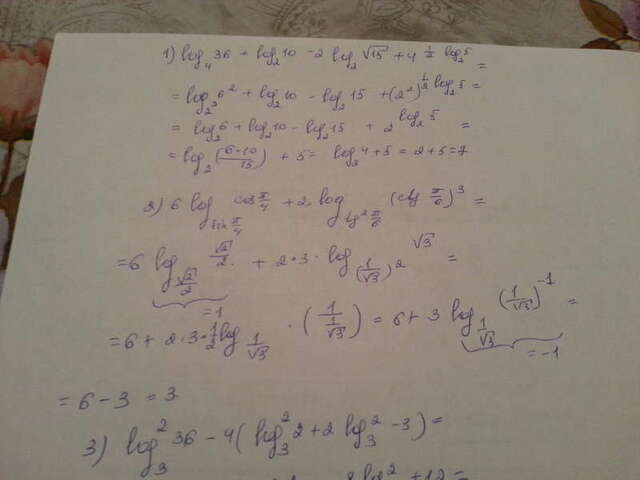 1) log₄ 36 + log₂ 10 - 2 log₂ √15 + 4^(1/2 log₂ 5) =
= log_(2²) 6² + log₂ 10 - log₂ 15 + (2²)^(1/2 log₂ 5) =
= log₂ 6 + log₂ 10 - log₂ 15 + 2^(log₂ 5) =
= log₂ (6*10/15) + 5 = log₂ 4 + 5 = 2 + 5 = 7
2) 6 log_(sin π/4) cos π/4 + 2 log_(tg² π/6) (ctg π/6)³ =
= 6 log_(√2/2) √2/2 + 2*3 * log_((1/√3)²) √3 =
= 1
= 6 + 2*3*1/2 log_(1/√3) * (1/(1/√3)) = 6 + 3 log_(1/√3) (1/√3)⁻¹ =
= -1
= 6 - 3 = 3
3) log₃² 36 - 4(log₃² 2 + 2 log₃ 2 - 3) =
+ 12 =